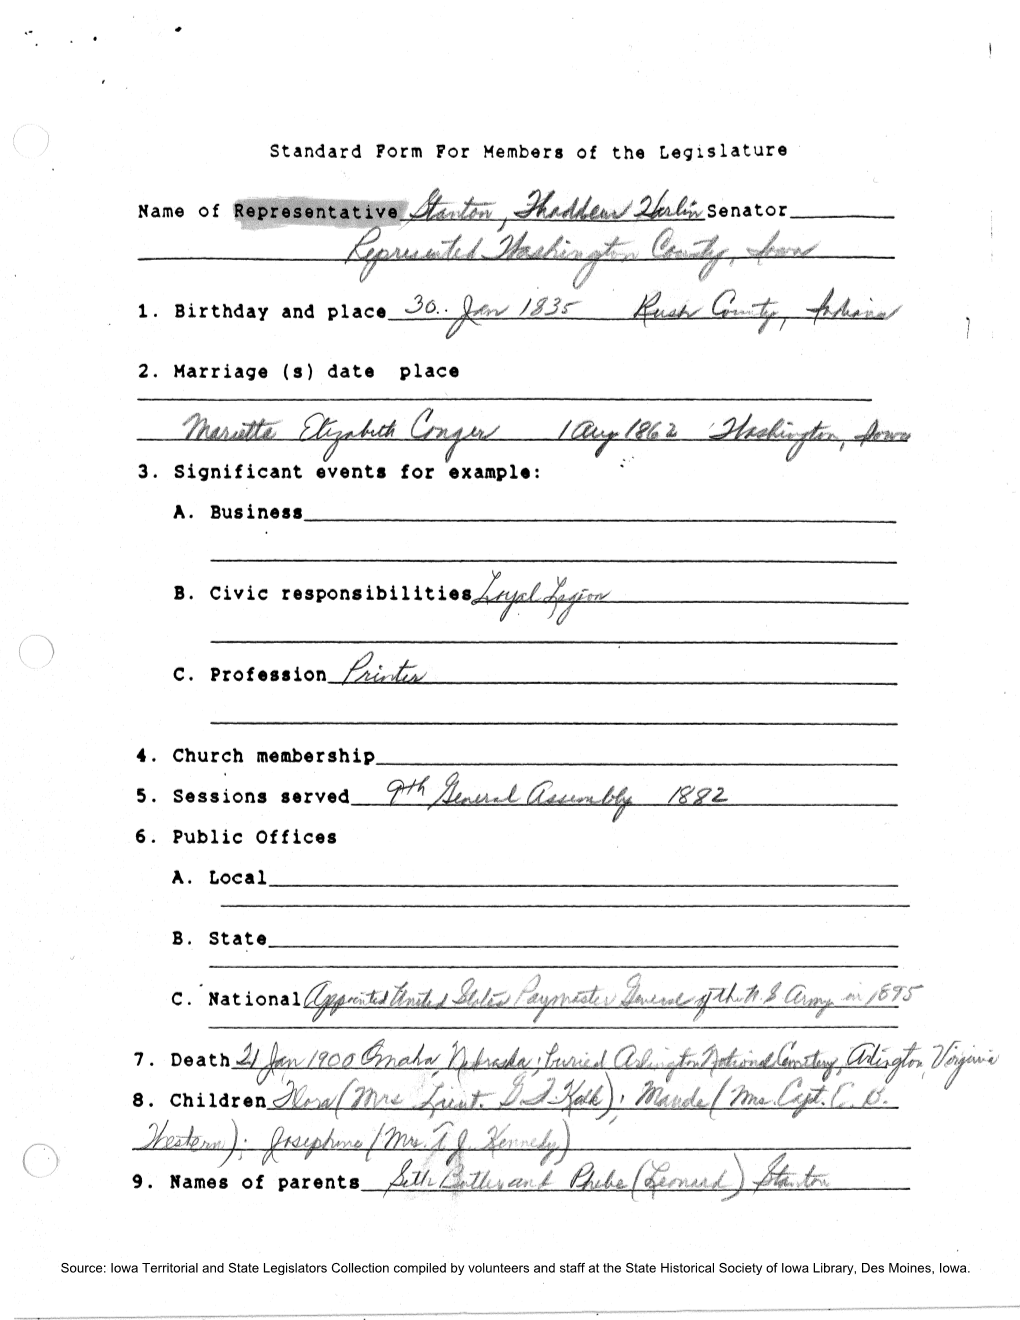 Standard Form For Members of the Legislature
Name of Representative Stanton, Thaddeus Harlin Senator
Represented Washington County, Iowa
1. Birthday and place 30. Jan 1835 Rush County, Indiana
2. Marriage (s) date place
Marietta Elizabeth Conger 1 Aug 1862 Washington, Iowa
3. Significant events for example:
A. Business
B. Civic responsibilities Loyal Legion
C. Profession Printer
4. Church membership
5. Sessions served 9th General Assembly 1882
6. Public Offices
A. Local
B. State
C. National Appointed United States Paymaster General of the U.S Army in 1895
7. Death 21 Jan 1900 Omaha, Nebraska; buried Arlington National Cemetery, Arlington, Virginia
8. Children Flora (Mrs Lieut. G. F. ); Maude (Mrs. Capt. C. B.
Western); Josephine (Mrs. T. J. Kennedy)
9. Names of parents Seth Butler and Phebe (Leonard) Stanton
Source: Iowa Territorial and State Legislators Collection compiled by volunteers and staff at the State Historical Society of Iowa Library, Des Moines, Iowa.